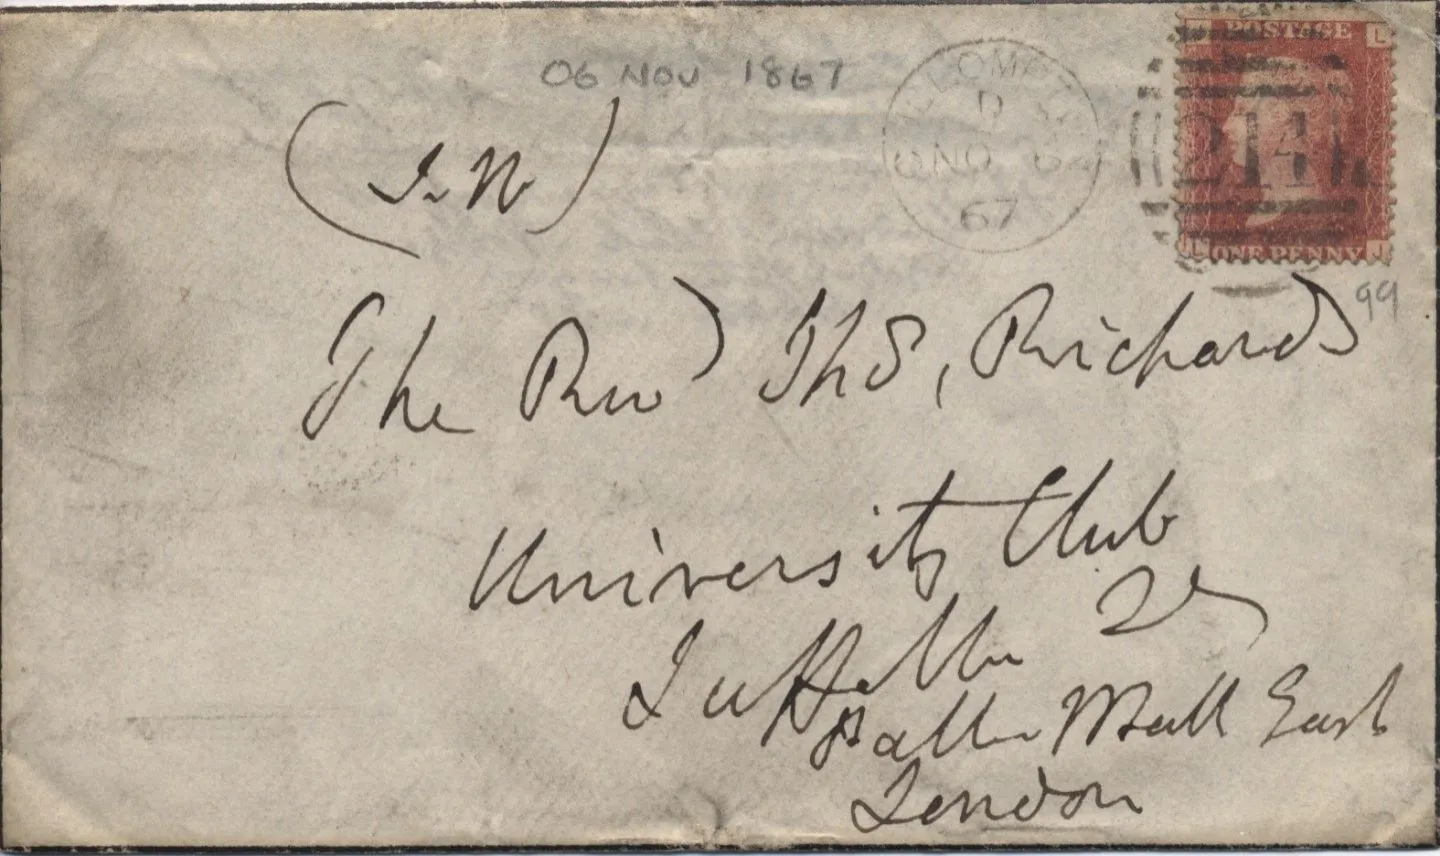 06 NOV 1867
NO 6
67
POSTAGE
L
214
L
ONE PENNY
99
The Revd Thos, Richards
University Club
Suffolk St
Pall Mall East
London